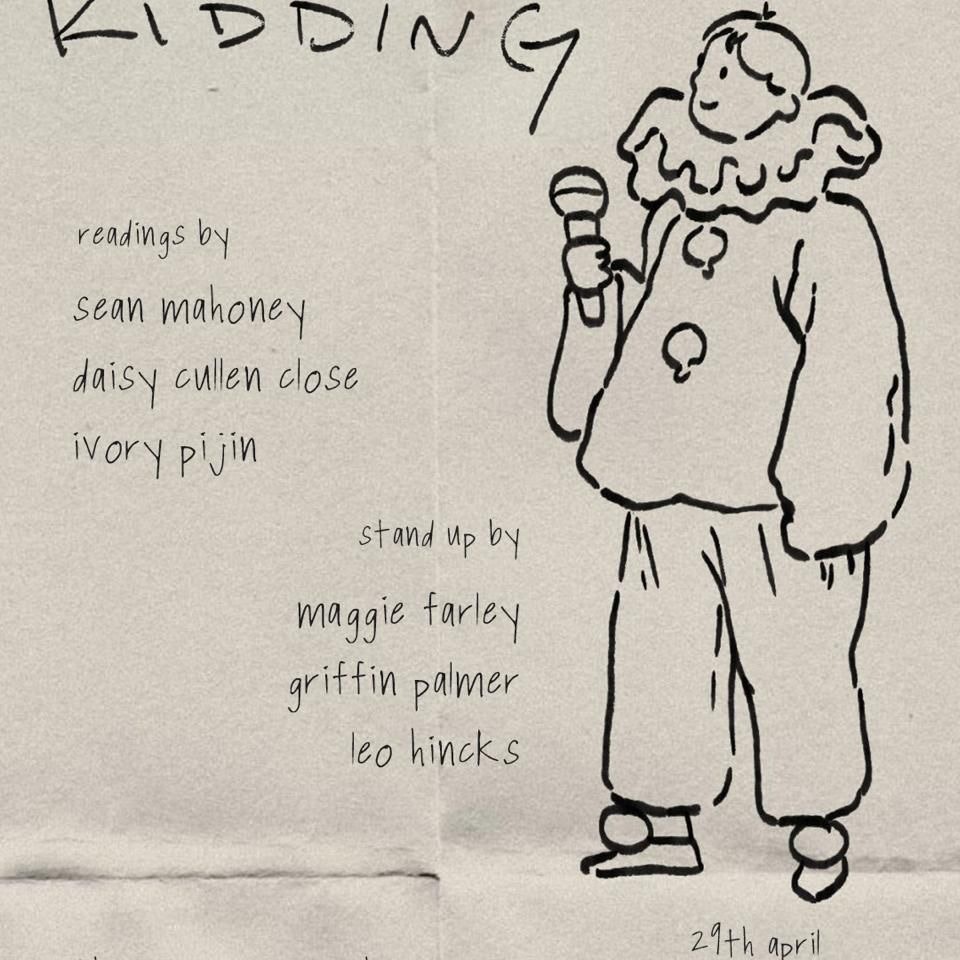 KIDDING
readings by
sean mahoney
daisy cullen close
ivory pijin
stand up by
maggie farley
griffin palmer
leo hincks
29th april